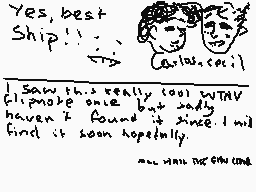 Yes, best
Ship!!
Carlos & cecil
I saw this really cool WTNV
flipnote once but sadly
haven't found it since. I will
find it soon hopefully.
ALL HAIL THE GLOW CLOUD